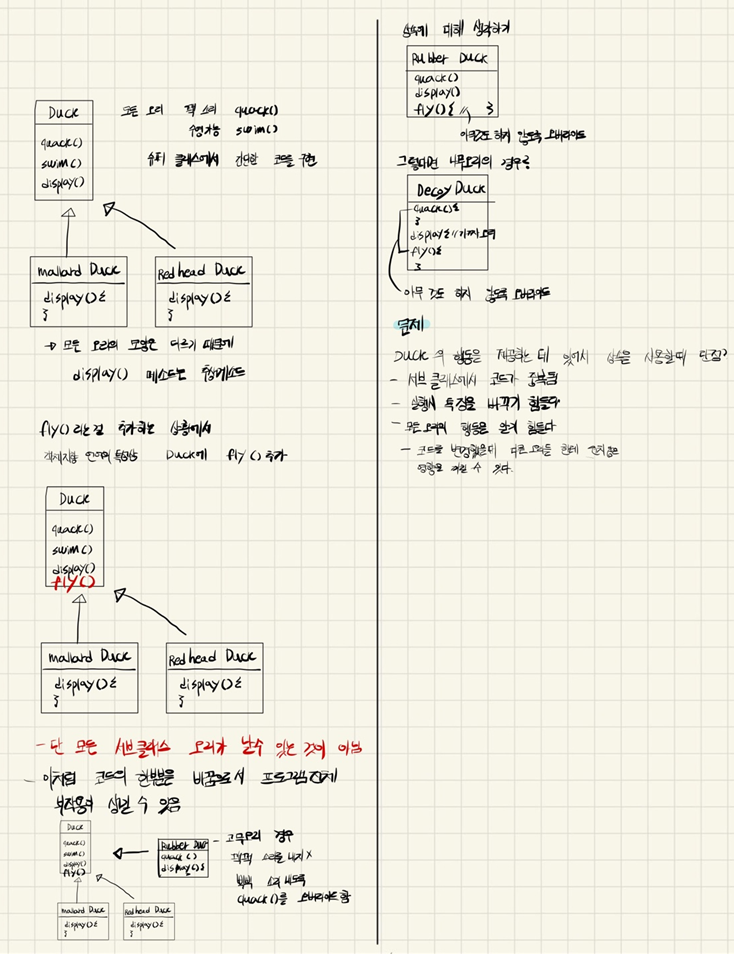 Duck
quack()
swim()
display()
모든 오리 꽥 소리 quack()
수영가능 swim()
슈퍼 클래스에서 간단한 코드를 구현
mallard Duck
display(){
}
Red head Duck
display(){
}
→ 모든 오리의 모양은 다르기 때문에
display() 메소드는 추상메소드
fly()라는걸 추가하는 상황에서
객체지향 언어의 특성상 Duck에 fly() 추가
Duck
quack()
swim()
display()
fly()
mallard Duck
display(){
}
Red head Duck
display(){
}
- 단 모든 서브클래스 오리가 날수 있는 것이 아님
- 이처럼 코드의 한부분을 바꿈으로서 프로그램 전체
부작용이 생길 수 있음
Duck
quack()
swim()
display()
fly()
Rubber Duck
quack()
display(){
- 고무오리 경우
꽥꽥 소리를 내지 x
삑삑 소리 내도록
quack()를 오버라이드 함
mallard Duck
display(){
}
Red head Duck
display(){
}
상속에 대해 생각하기
Rubber Duck
quack()
display()
fly(){ // }
아무것도 하지 않도록 오버라이드
그렇다면 나무오리의 경우?
Decoy Duck
quack(){
}
display{ // 가짜오리
fly(){
}
아무 것도 하지 않도록 오버라이드
문제
Duck 의 행동을 제공하는 데 있어서 상속을 사용할때 단점?
- 서브 클래스에서 코드가 중복됨
- 실행시 특징을 바꾸기 힘들다
- 모든 오리의 행동을 알기 힘들다
- 코드를 변경했을때 다른 오리들 한테 안좋은
영향을 끼칠 수 있다.